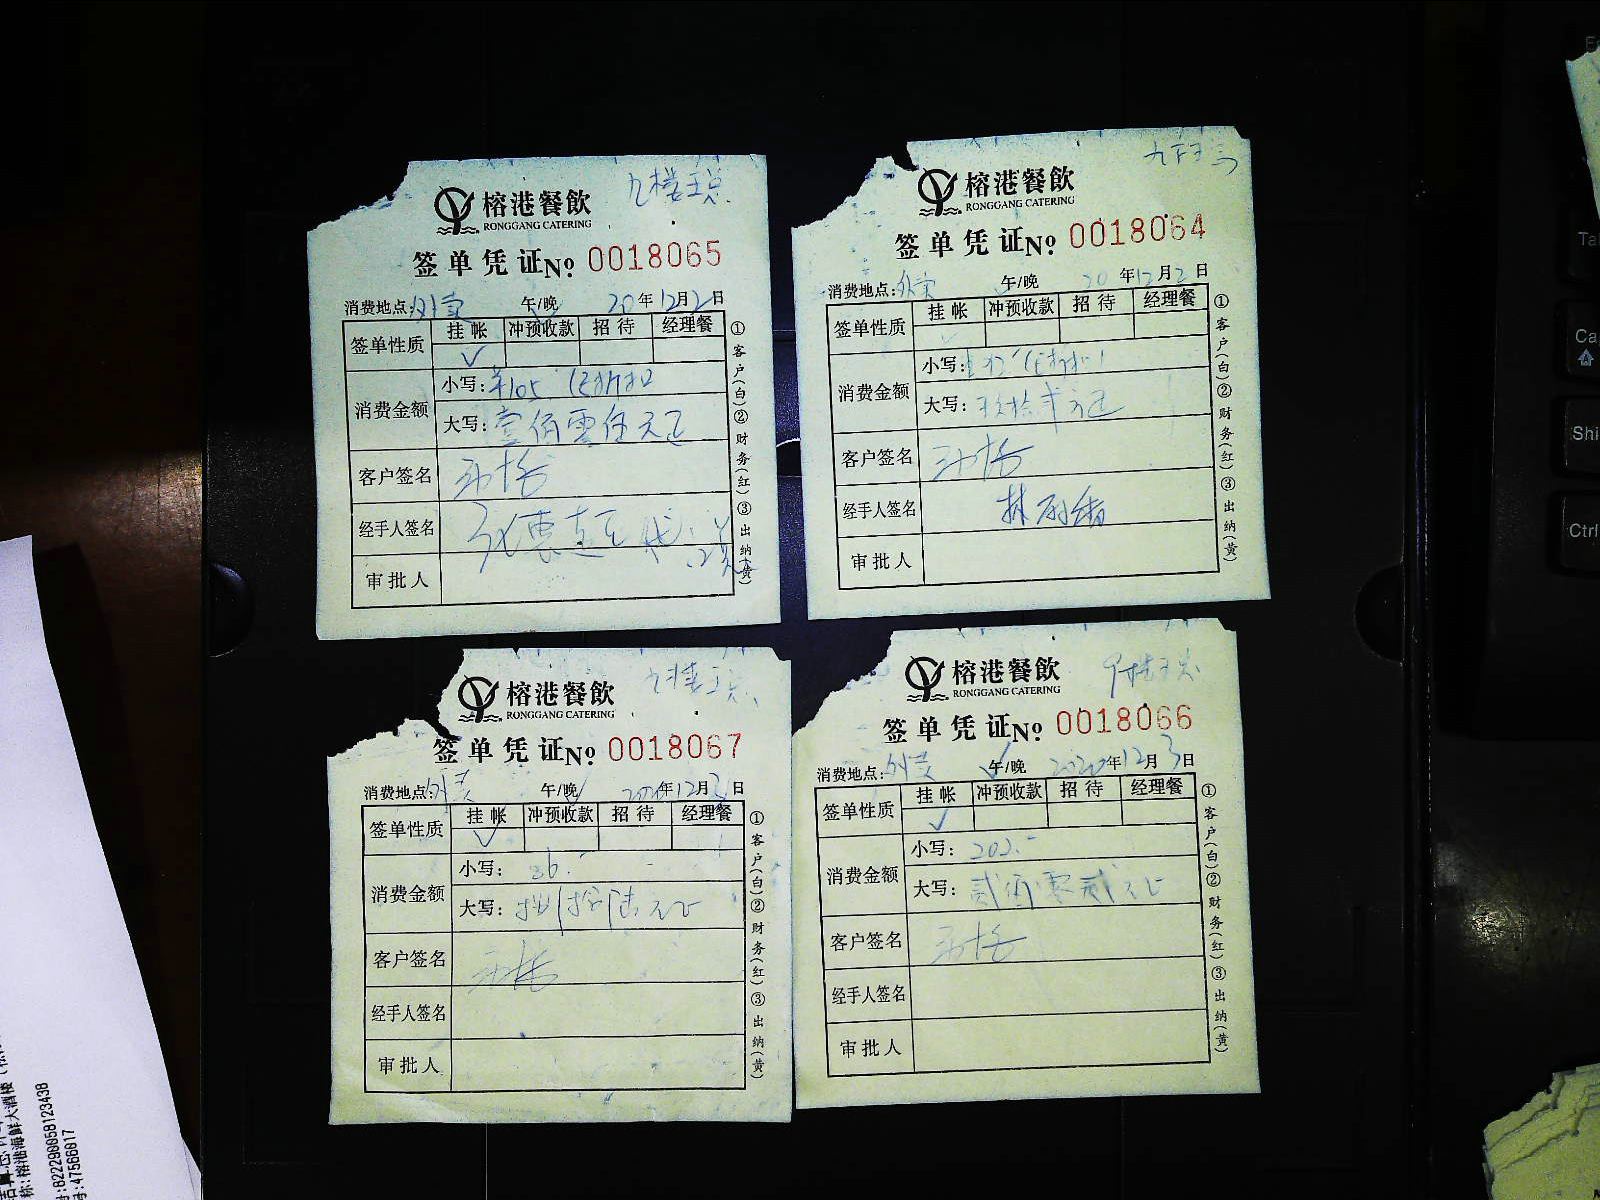 九楼王总
榕港餐飲
RONGGANG CATERING
签单凭证 No 0018065
消费地点: 外卖 午/晚 20年12月2日
签单性质 挂帐 冲预收款 招待 经理餐
✓
消费金额
小写: ¥105. (已折扣)
大写: 壹佰零伍元正
客户签名
经手人签名
审批人
①客户(白)②财务(红)③出纳(黄)
榕港餐飲
RONGGANG CATERING
签单凭证 No 0018064
消费地点: 外卖 午/晚 20年12月2日
签单性质 挂帐 冲预收款 招待 经理餐
消费金额
小写:
大写: 玖拾贰元正
客户签名
经手人签名 林
审批人
①客户(白)②财务(红)③出纳(黄)
九楼王总
榕港餐飲
RONGGANG CATERING
签单凭证 No 0018067
消费地点: 外卖 午/晚 2020年12月3日
签单性质 挂帐 冲预收款 招待 经理餐
✓
消费金额
小写: 86.-
大写: 捌拾陆元正
客户签名
经手人签名
审批人
①客户(白)②财务(红)③出纳(黄)
九楼王总
榕港餐飲
RONGGANG CATERING
签单凭证 No 0018066
消费地点: 外卖 午/晚 2020年12月3日
签单性质 挂帐 冲预收款 招待 经理餐
✓
消费金额
小写: 202.-
大写: 贰佰零贰元正
客户签名
经手人签名
审批人
①客户(白)②财务(红)③出纳(黄)
称:榕港海鲜大酒楼
号:822290058123438
号:47566017
Ctrl